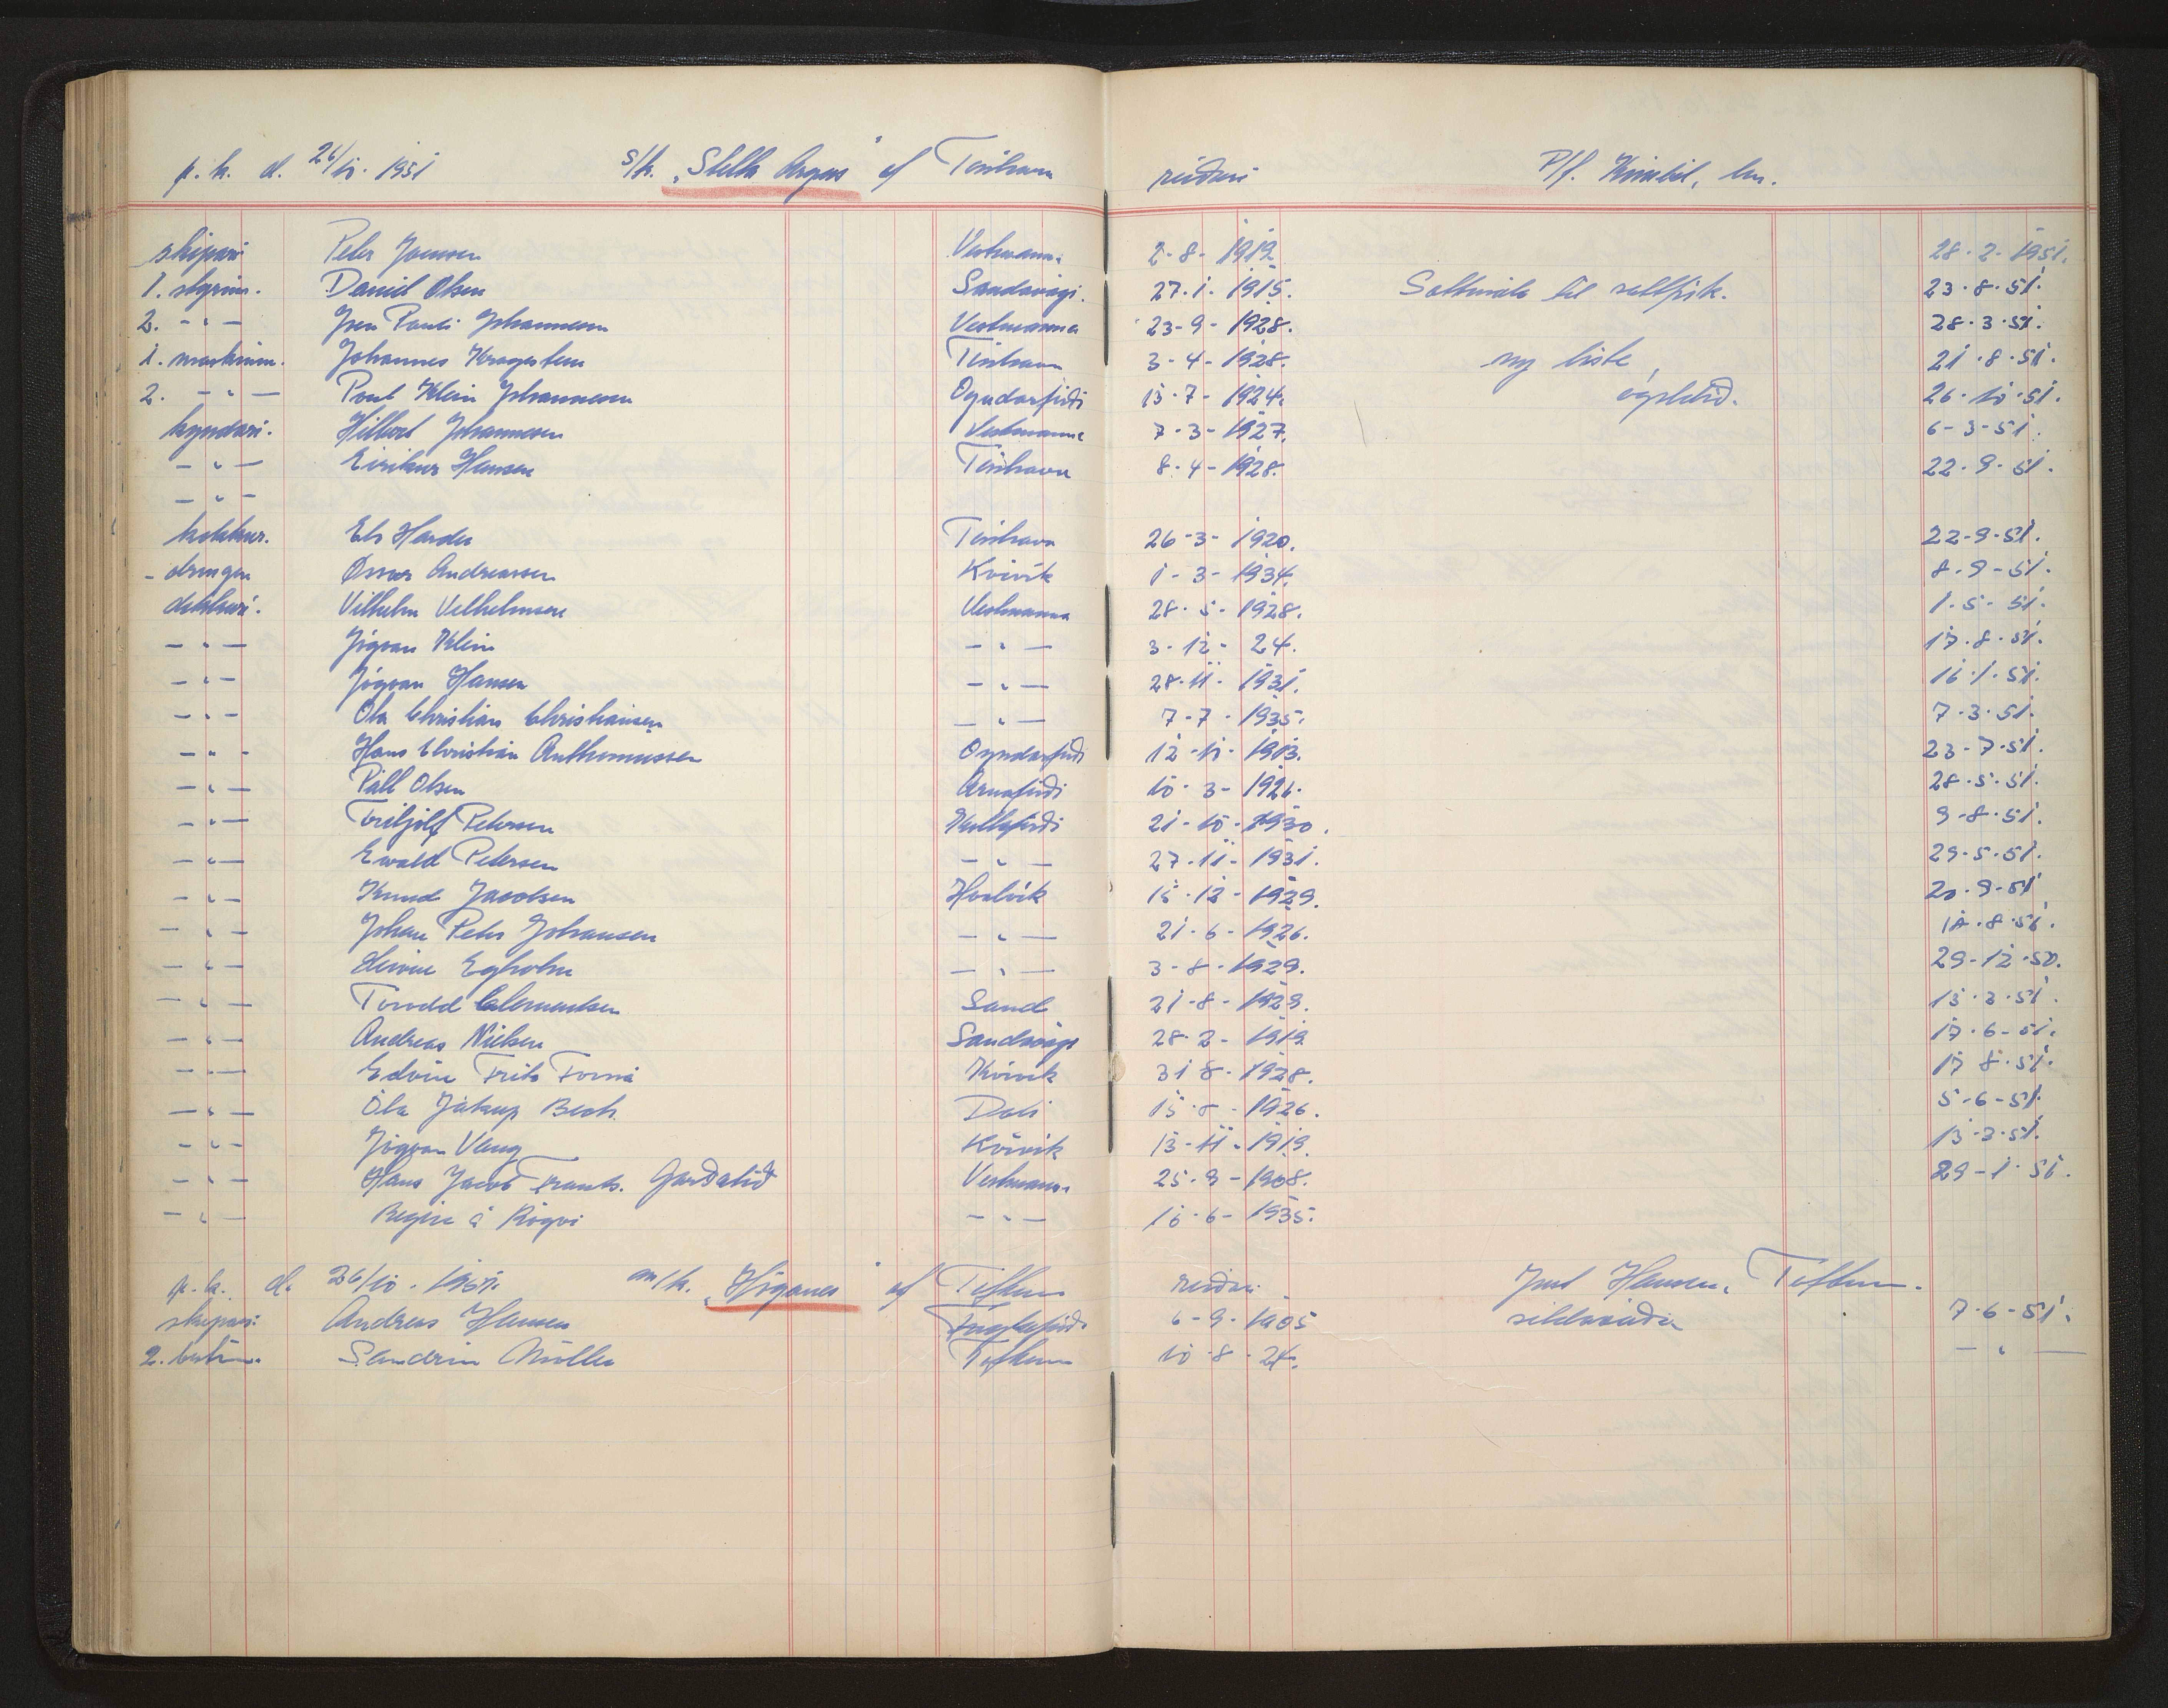 p. k. d. 26/10. 1951 s/k. „Stella Argus" af Tórshavn reiðari P/f. Kimbil, hn.
skipari Peter Joensen Vestmanna 2-8-1919 28.2.1951.
1. stýrim. Daniel Olsen Sandavági. 27.1.1915. Saltmála til saltfisk. 23.8.51.
2. -"- Jens Pauli Johannesen Vestmanna 23-9-1928. 28.3.51.
1. maskinm. Johannes Kragesteen Tórshavn 3-4-1928. ny liste 21.8.51.
2. -"- Poul Klein Johannesen Oyndarfirði 13-7-1924. ógreitt. 26.10.51.
kyndari. Hilbert Johannesen Vestmanna 7-3-1927. 6-3-51.
-"- Eirikur Hansen Tórshavn 8-4-1928. 22.9.51.
-"-
kokkur. Els Harder Tórshavn 26-3-1920. 22-9-51.
-drongen Osvar Andreassen Kvívík 1-3-1934. 8.9-51.
dekkari. Vilhelm Vilhelmsen Vestmanna 28.5-1928. 1.5-51.
-"- Jógvan Klein -"- 3-12-24. 17.8.51.
-"- Jógvan Hansen -"- 28-11-1931. 16.1.51.
-"- Ola Christian Christiansen -"- 7-7-1935. 7.3.51.
-"- Hans Christian Anthoniussen Oyndarfirði 12-11-1913. 23-7-51.
-"- Páll Olsen Arnafirði 10-3-1926. 28.5.51.
-"- Petersen Kollafirði 21-10-1930. 9-8-51.
-"- Ewald Petersen -"- 27.11-1931. 29-5-51.
-"- Knud Jacobsen Hvalvík 15-12-1929. 20.9-51
-"- Johan Peter Johansen -"- 21-6-1926. 18.8.51.
-"- Egholm -"- 3-8-1929. 29-12-50.
-"- Torodd Clementsen Sand 21-8-1929. 13.3.51.
-"- Andreas Nielsen Sandavági 28-2-1919 17.6-51.
-"- Edvin Frits Forná Kvívík 31-8-1928. 17 8.51.
-"- Óla Jákup Bech Dali 15-8-1926. 5-6-51.
-"- Jógvan Vang Kvívík 13-11-1919. 13-3-51.
-"- Hans Jacob Frants. Garðalið Vestmanna 25-9-1908. 29-1-51.
-"- Regin á Rógvi -"- 16-6-1935.
p. k. d. 26/10. 1951. m/k. „Høganes" af Toftum reiðari Juul Hansen, Toftum.
skipari. Andreas Hansen Fuglafirði 6-9-1905 sildaveiða 7-6-51.
2. bestm. Sandrin Müller Toftum 10-8-24. -"-